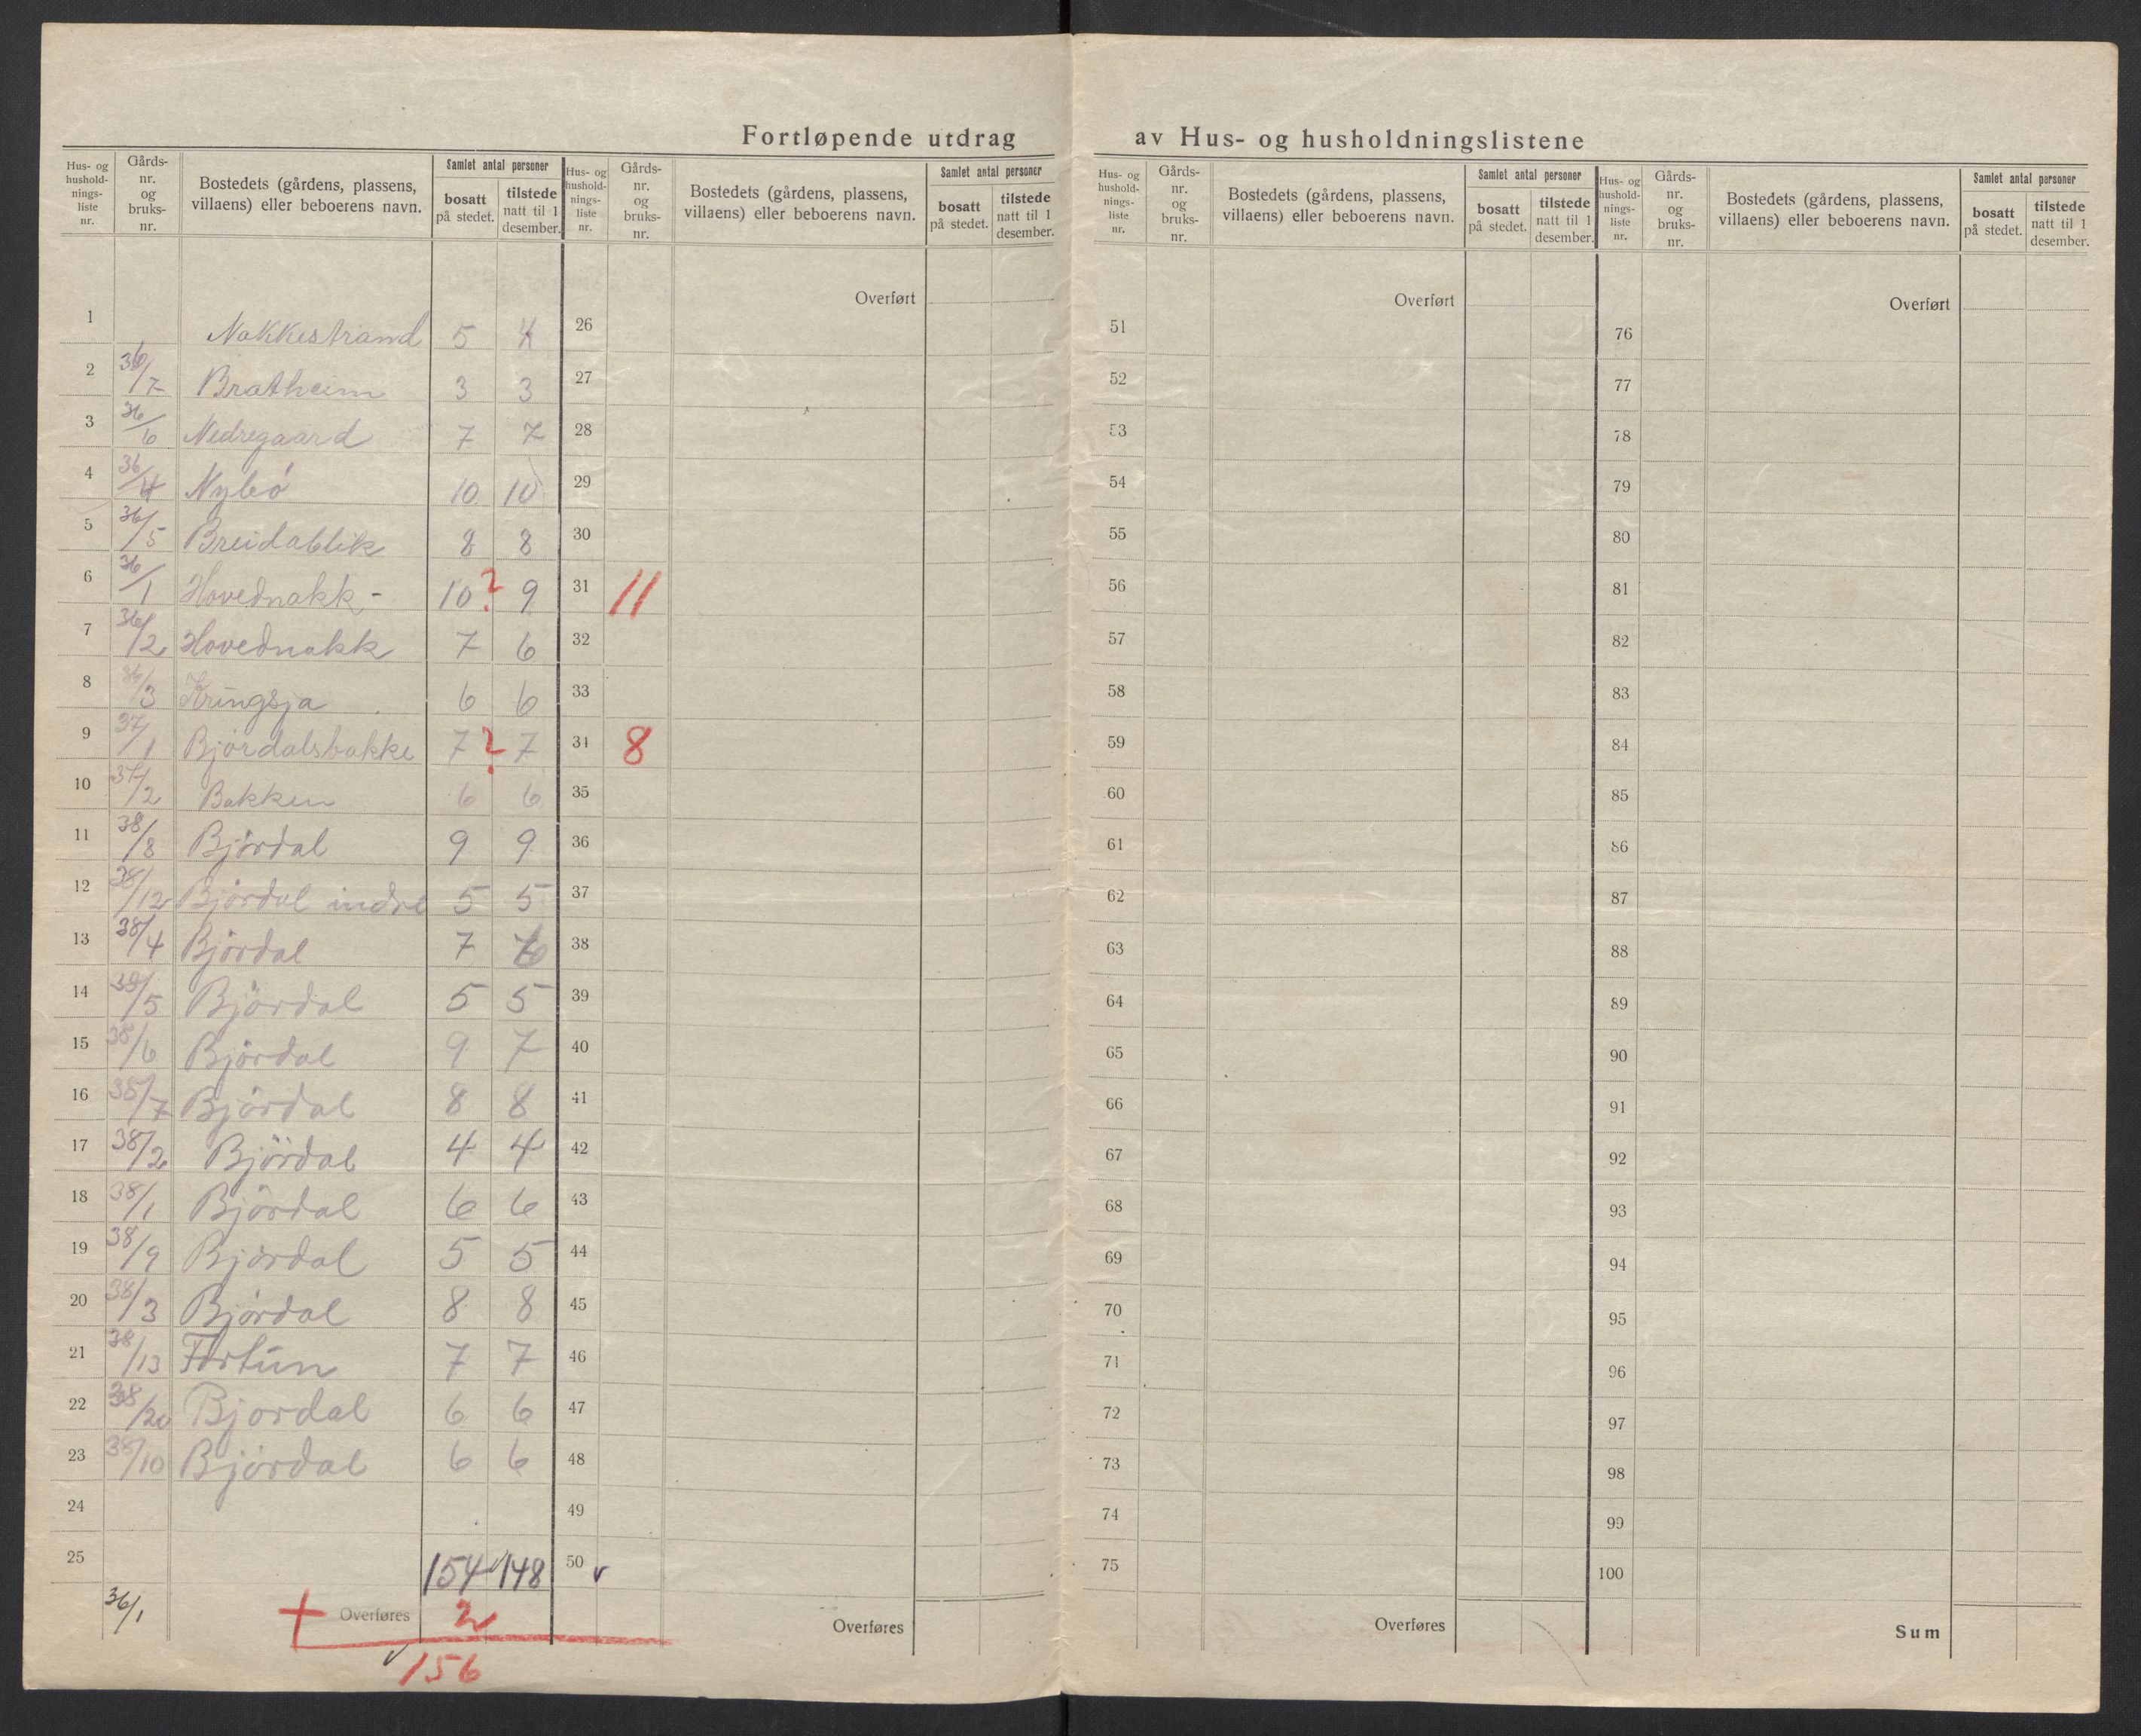 Fortløpende utdrag av Hus- og husholdningslistene
Hus- og husholdnings-liste nr. Gårds-nr. og bruks-nr. Bostedets (gårdens, plassens, villaens) eller beboerens navn. Samlet antal personer bosatt på stedet. tilstede natt til 1 desember.
Hus- og husholdnings-liste nr. Gårds-nr. og bruks-nr. Bostedets (gårdens, plassens, villaens) eller beboerens navn. Samlet antal personer bosatt på stedet. tilstede natt til 1 desember.
Hus- og husholdnings-liste nr. Gårds-nr. og bruks-nr. Bostedets (gårdens, plassens, villaens) eller beboerens navn. Samlet antal personer bosatt på stedet. tilstede natt til 1 desember.
Hus- og husholdnings-liste nr. Gårds-nr. og bruks-nr. Bostedets (gårdens, plassens, villaens) eller beboerens navn. Samlet antal personer bosatt på stedet. tilstede natt til 1 desember.
Overført Overført Overført
1 Nakkestrand 5 4 26 51 76
2 36/7 Bratheim 3 3 27 52 77
3 36/6 Nedregaard 7 7 28 53 78
4 36/4 Nybö 10 10 29 54 79
5 36/5 Breidablik 8 8 30 55 80
6 36/1 Hovednakk- 10 ? 9 31 11 56 81
7 36/2 Hovednakk 7 6 32 57 82
8 36/3 Kringsja 6 6 33 58 83
9 37/1 Björdalsbakke 7 ? 7 34 8 59 84
10 37/2 Bakken 6 6 35 60 85
11 38/8 Björdal 9 9 36 61 86
12 38/12 Björdal indre 5 5 37 62 87
13 38/4 Björdal 7 6 38 63 88
14 38/5 Björdal 5 5 39 64 89
15 38/6 Björdal 9 7 40 65 90
16 38/7 Björdal 8 8 41 66 91
17 38/2 Björdal 4 4 42 67 92
18 38/1 Björdal 6 6 43 68 93
19 38/9 Björdal 5 5 44 69 94
20 38/3 Björdal 8 8 45 70 95
21 38/13 Fortun 7 7 46 71 96
22 38/20 Bjordal 6 6 47 72 97
23 38/10 Björdal 6 6 48 73 98
24 49 74 99
25 154 148 50 75 100
36/1 + Overføres 2 Overføres Overføres Sum
156